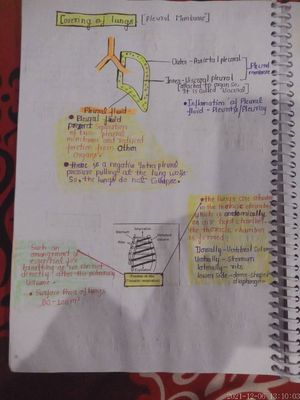 Covering of lungs [Pleural Membrane]
Outer - Parietal pleural
Pleural
membrane
Inner - Visceral pleural
[attached to organ so,
it is called visceral]
Pleural fluid
• Pleural fluid
prevent
of two pleural
membrane and reduced
friction from other
• Inflamation of Pleural
fluid - Pleuritis/Pleurisy
• There is a negative intra pleural
pressure pulling at the lung walls
So, the lungs do not collapse.
The lungs are situated
in the thoracic chamber
which is anatomically
an air tight chamber
the thoracic chamber
is formed
Dorsally - Vertebral Column
Ventrally - Sternum
laterally - ribs
lower side - dome-shaped
diaphragm
Such an
arrangement is
essential for
breathing as we cannot
directly alter the pulmonary
volume.
• Surface Area of lungs
2021-12-06 13:10:03